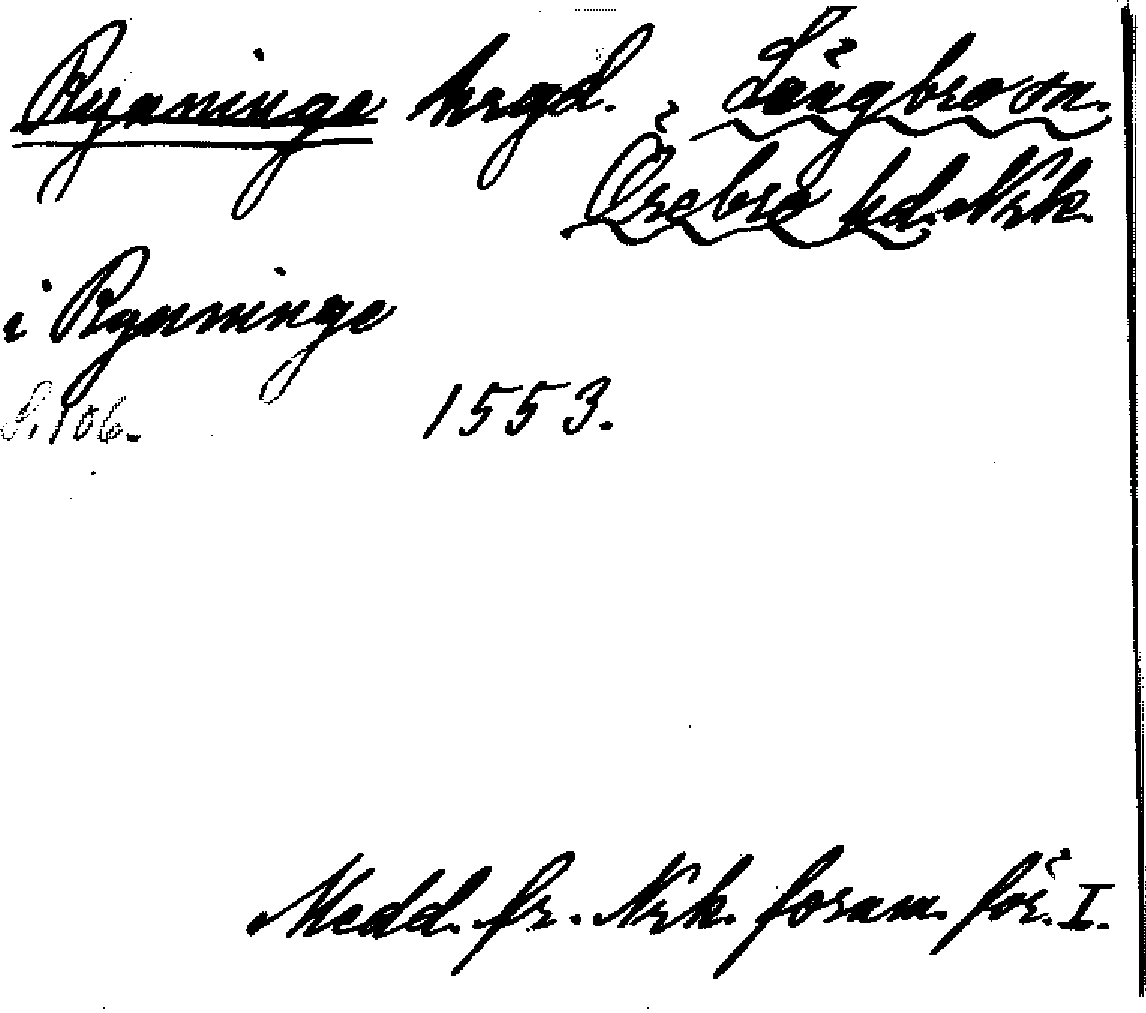 Rynninge hrgd. Längbro sn.
Örebro hd. Nrk.
i Rynninge
S. 106. 1553.
Medd. fr. Nrk. fornm. för. I.